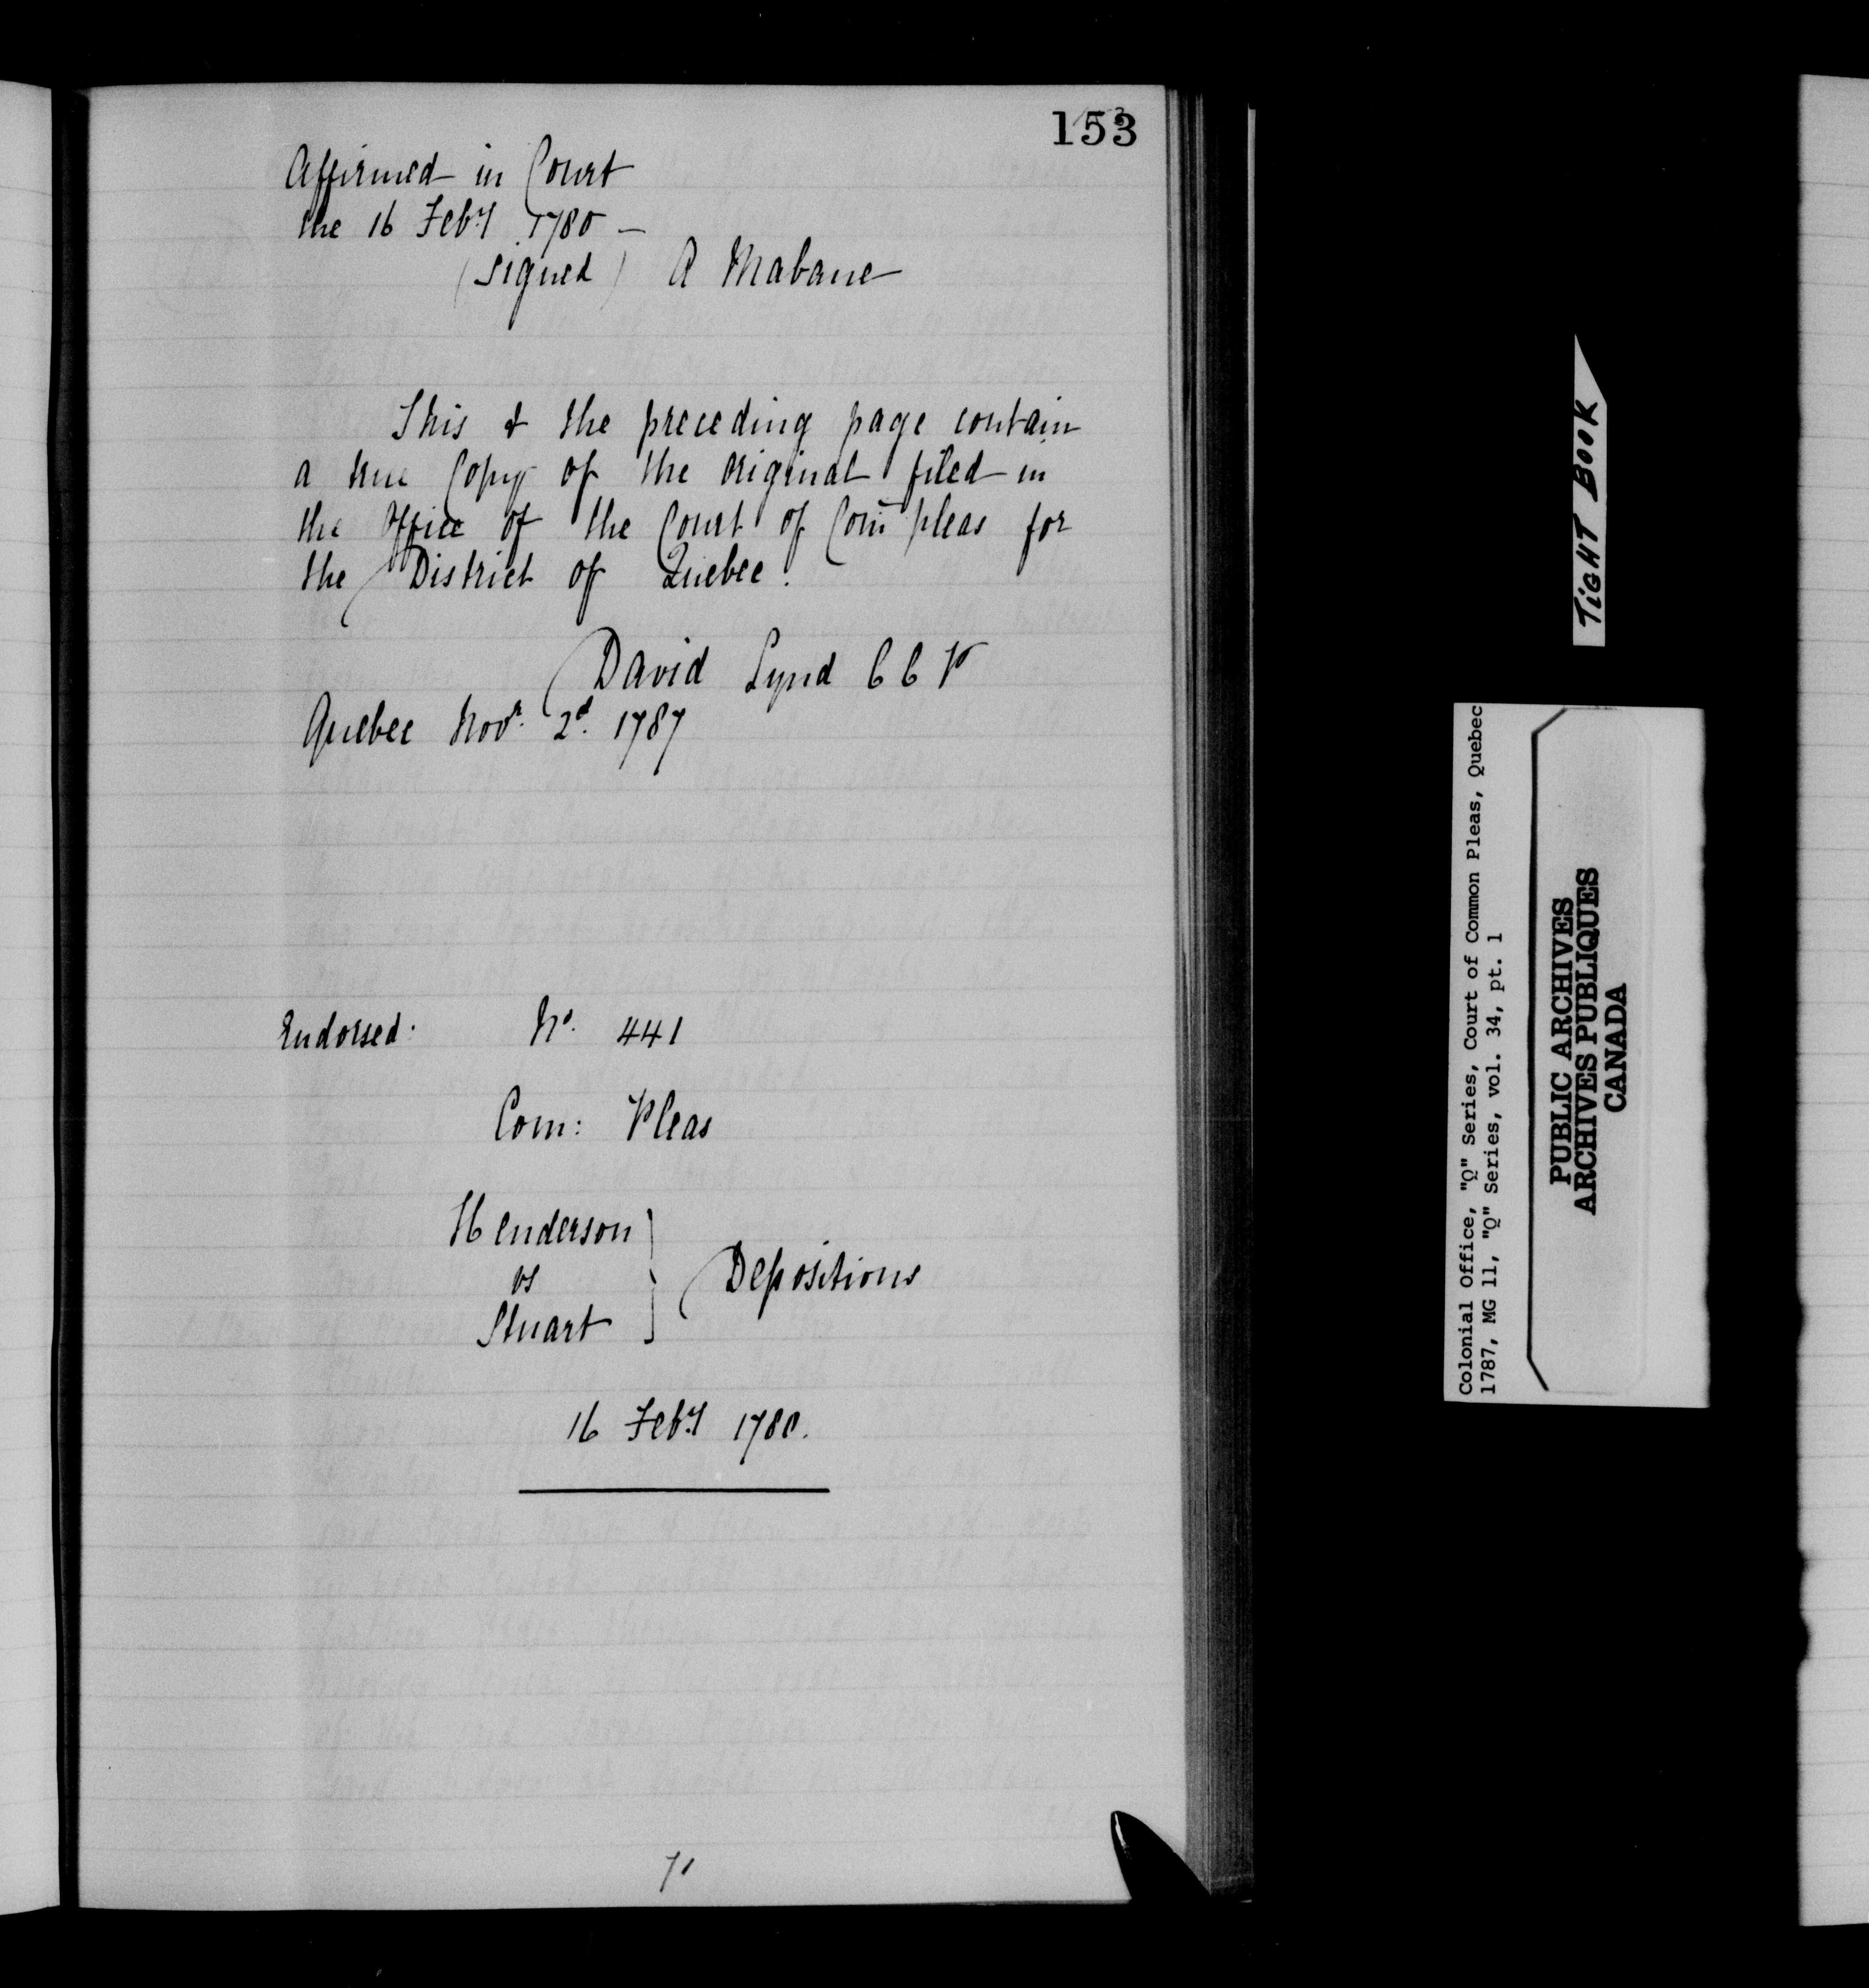 153
Affirmed in Court
the 16 Feby 1780 —
(signed) A Mabane
This & the preceding page contain
a true Copy of the original filed in
the Office of the Court of Com̄ pleas for
the District of Quebec.
David Lynd C C P
Quebec Novr. 2d. 1787
Endorsed. No. 441
Com: Pleas
Henderson
vs
Stuart
Depositions
16 Feby 1780.
71
TIGHT BOOK
Colonial Office, "Q" Series, Court of Common Pleas, Quebec
1787, MG 11, "Q" Series, vol. 34, pt. 1
PUBLIC ARCHIVES
ARCHIVES PUBLIQUES
CANADA